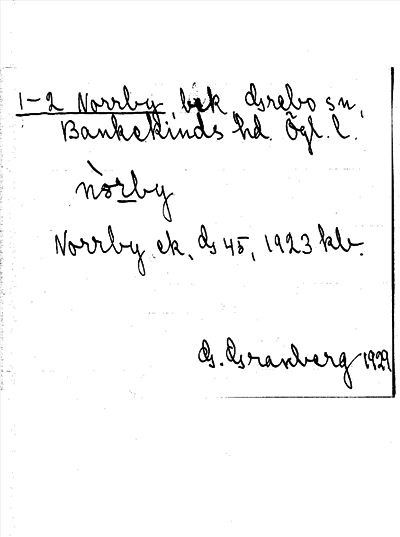 1-2 Norrby, bek, Grebo sn,
Bankekinds hd. Ögl. l.
nòrby
Norrby ek, Gs 45, 1923 kb.
G. Granberg 1929